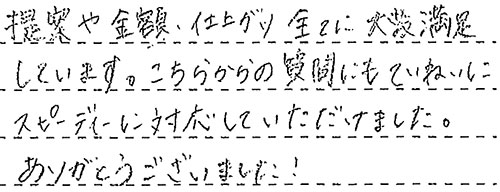 提案や金額、仕上がり全てに大変満足
しています。こちらからの質問にもていねいに
スピーディーに対応していただけました。
ありがとうございました!